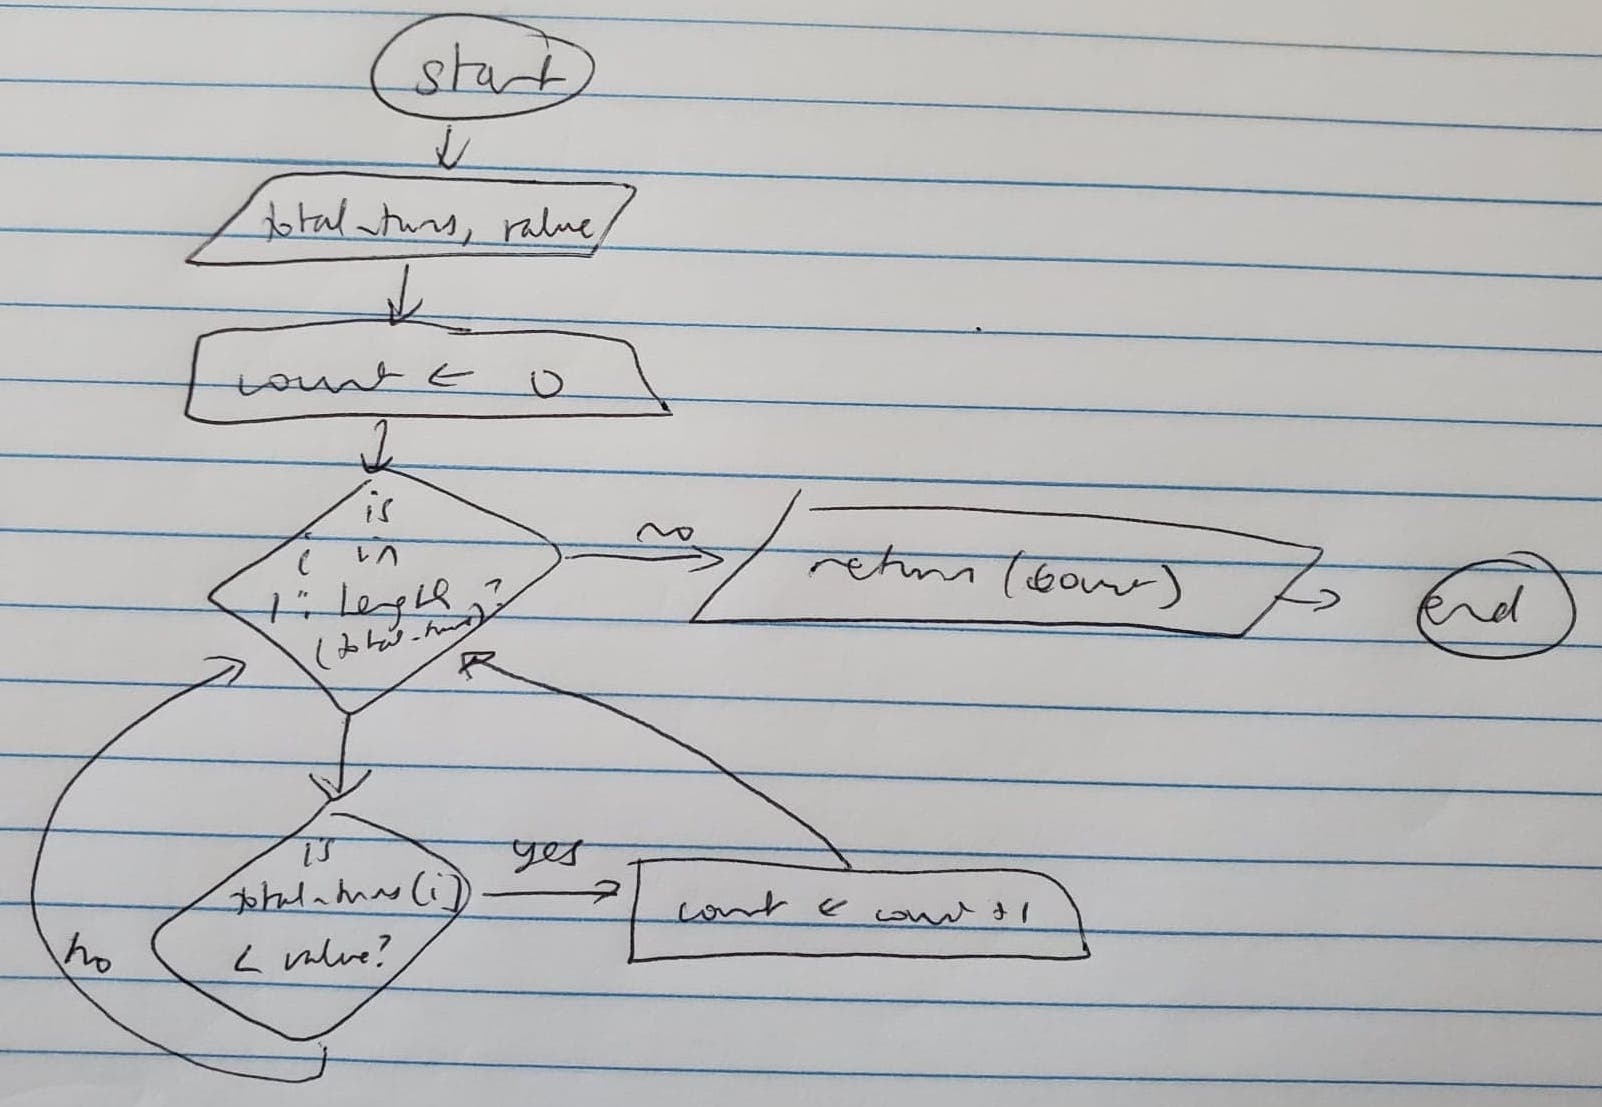 start
total_turns, value
count ← 0
is
i in
1: length
(total_turns)?
no
return (count)
end
is
total_turns(i)
< value?
yes
count ← count +1
no